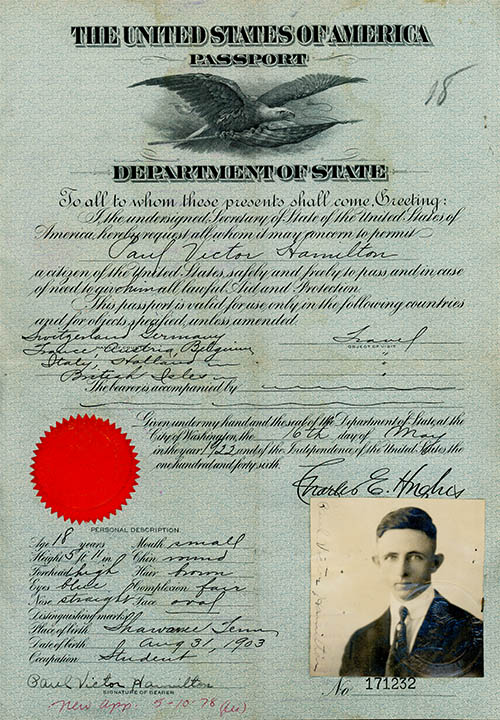 THE UNITED STATES OF AMERICA
PASSPORT
15
DEPARTMENT OF STATE
To all to whom these presents shall come, Greeting:
I, the undersigned, Secretary of State of the United States of
America, hereby request all whom it may concern to permit
Paul Victor Hamilton
a citizen of the United States, safely and freely to pass and in case
of need to give him all lawful Aid and Protection
This passport is valid for use only in the following countries
and for objects specified, unless amended.
Switzerland Germany
France, Austria, Belgium Travel
OBJECT OF VISIT
Italy, Holland "
British Isles "
The bearer is accompanied by
Given under my hand and the seal of the Department of State at the
City of Washington, the 16th day of May
in the year 1922 and of the Independence of the United States the
one hundred and forty sixth.
Charles E. Hughes
PERSONAL DESCRIPTION.
Age 18 years Mouth small
Height 5 ft 11 in Chin round
Forehead high Hair brown
Eyes blue Complexion fair
Nose straight Face oval
Distinguishing marks
Place of birth Shawanee Tenn
Date of birth Aug 31, 1903
Occupation Student
Paul Victor Hamilton
SIGNATURE OF BEARER
No 171232
New app. 5-10-78